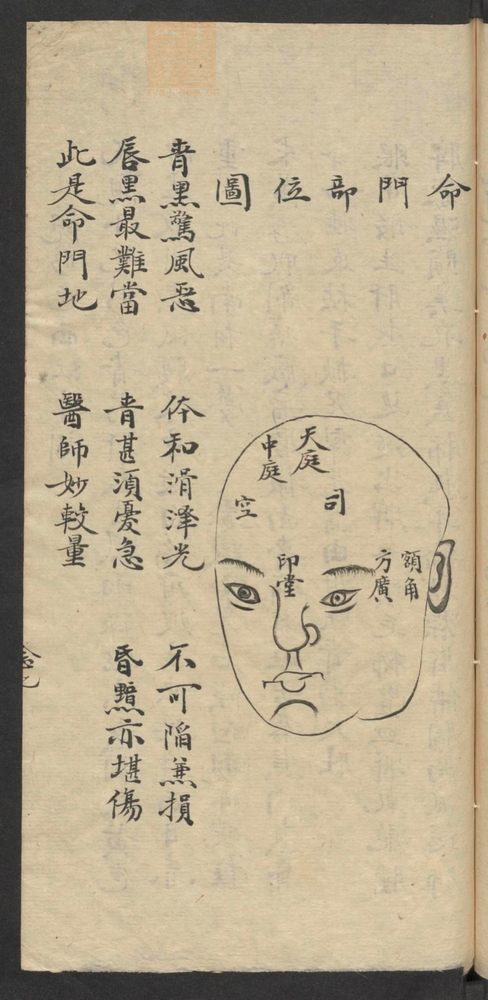 命門部位圖
天庭
中庭
司
空
印堂
額角
方廣
青黑驚風惡 体和滑澤光 不可陷兼損
唇黑最難當 青甚須憂急 昏黯亦堪傷
此是命門地 醫師妙較量